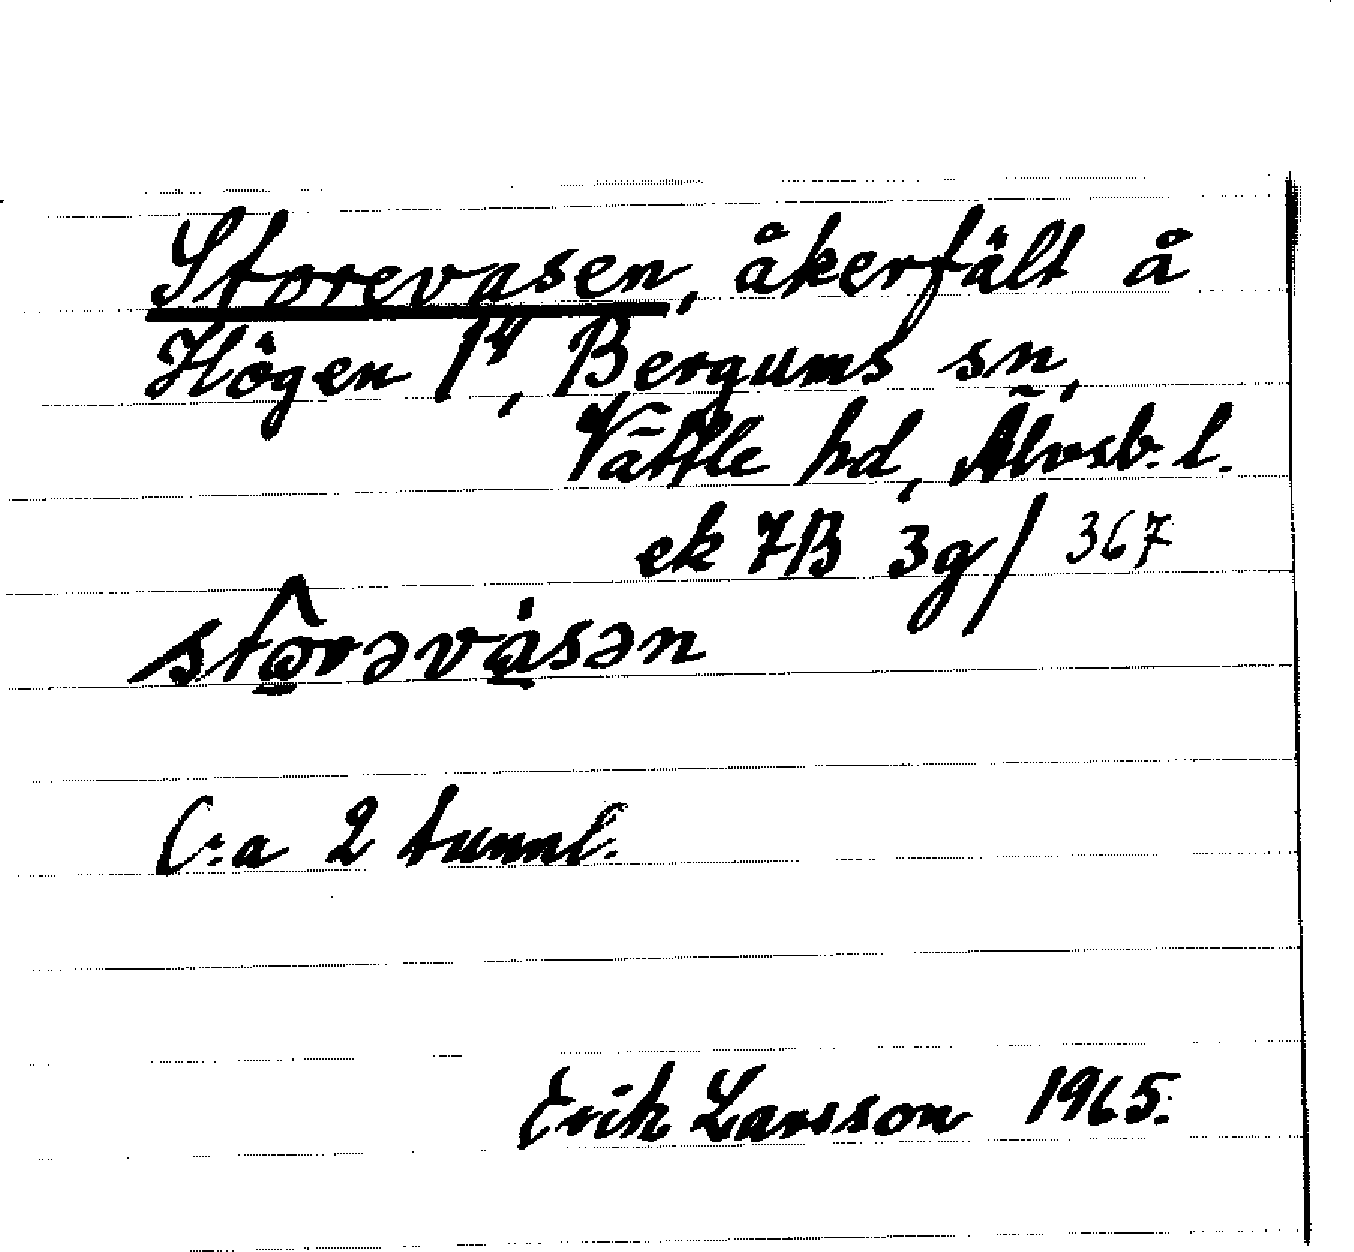 Storevasen, åkerfält å
Högen 1⁴, Bergums sn,
Vättle hd, Älvsb. l.
ek 7B 3g/ 367
stɷ̂rəvàsən
C:a 2 tunnl.
Erik Larsson 1965.